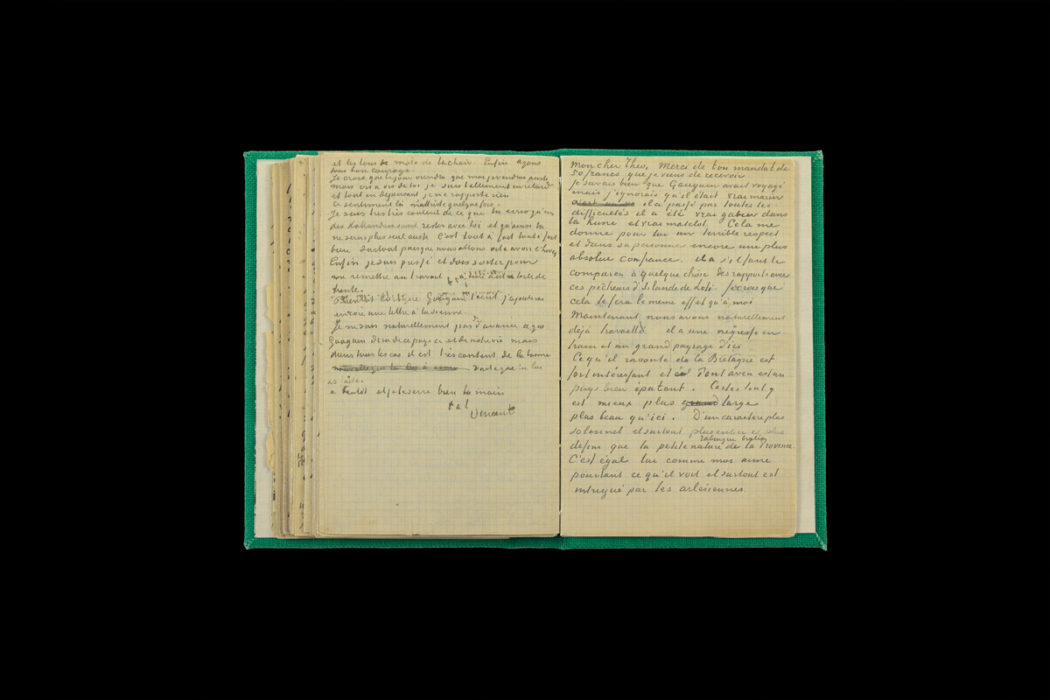 et les tons de
Enfin ayons
tous bon courage.
Je crois que le jour viendra que moi
mais vis à vis de toi je suis tellement en retard
et tout en dépensant je ne rapporte rien
ce sentiment là m'attriste quelquefois.
Je suis très très content de ce que tu
des Hollandais
rester avec toi et qu'ainsi tu
ne seras plus seul aussi. C'est tout à fait tout à fait
bien surtout puisque nous allons
avoir l'hiver
Enfin je suis pressé et dois sortir pour
me remettre au travail à une autre toile de
trente.
Bientôt lorsque Gauguin t'écrit j'ajouterai
encore une lettre à la sienne.
Je ne sais naturellement pas d'avance ce que
Gauguin dira de ce pays ci et de notre vie mais
dans tous les cas il est très content de la bonne
à bientôt et je te serre bien la main
t. à t.
Vincent
Mon cher Theo, Merci de ton mandat de
50 francs que je viens de recevoir
je savais bien que Gauguin avait voyagé
mais j'ignorais qu'il était vrai marin
il a passé par toutes les
difficultés il a été vrai gabier dans
la hune et vrai matelot. Cela me
donne pour lui un terrible respect
et dans sa personne encore une plus
absolue confiance. il a s'il faut le
comparer à quelque chose des rapports avec
ces pêcheurs d'Islande de Loti. je crois que
cela te fera le même effet qu'à moi
Maintenant nous avons naturellement
déjà travaillé. il a une négresse en
train et un grand paysage d'ici
Ce qu'il raconte de la Bretagne est
fort intéressant et
Pont aven est un
pays bien épatant. Certes tout y
est mieux plus large
plus beau qu'ici. D'un caractère plus
solennel et surtout plus entier et plus
défini que la petite nature
de la Provence.
C'est égal lui comme moi aime
pourtant ce qu'il voit et surtout est
intrigué par les arlésiennes.